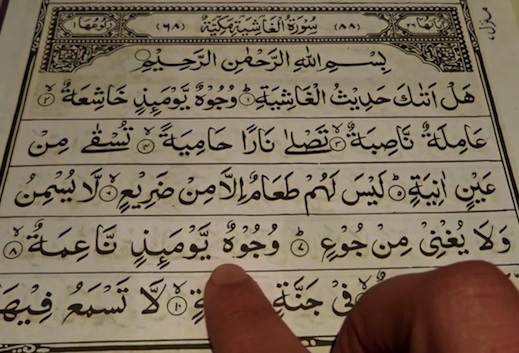 سُوْرَةُ الْغَاشِيَةِ مَكِّيَّةٌ (٨٨) (٦٨)
بِسْمِ اللهِ الرَّحْمٰنِ الرَّحِيْمِ
هَلْ اَتٰىكَ حَدِيْثُ الْغَاشِيَةِ ۱ وُجُوْهٌ يَّوْمَىِٕذٍ خَاشِعَةٌ ۲
عَامِلَةٌ نَّاصِبَةٌ ۳ تَصْلٰى نَارًا حَامِيَةً ۴ تُسْقٰى مِنْ
عَيْنٍ اٰنِيَةٍ ۵ لَيْسَ لَهُمْ طَعَامٌ اِلَّا مِنْ ضَرِيْعٍ ۶ لَّا يُسْمِنُ
وَلَا يُغْنِيْ مِنْ جُوْعٍ ۷ وُجُوْهٌ يَّوْمَىِٕذٍ نَّاعِمَةٌ ۸
فِيْ جَنَّةٍ ۱۰ لَّا تَسْمَعُ فِيْهَا